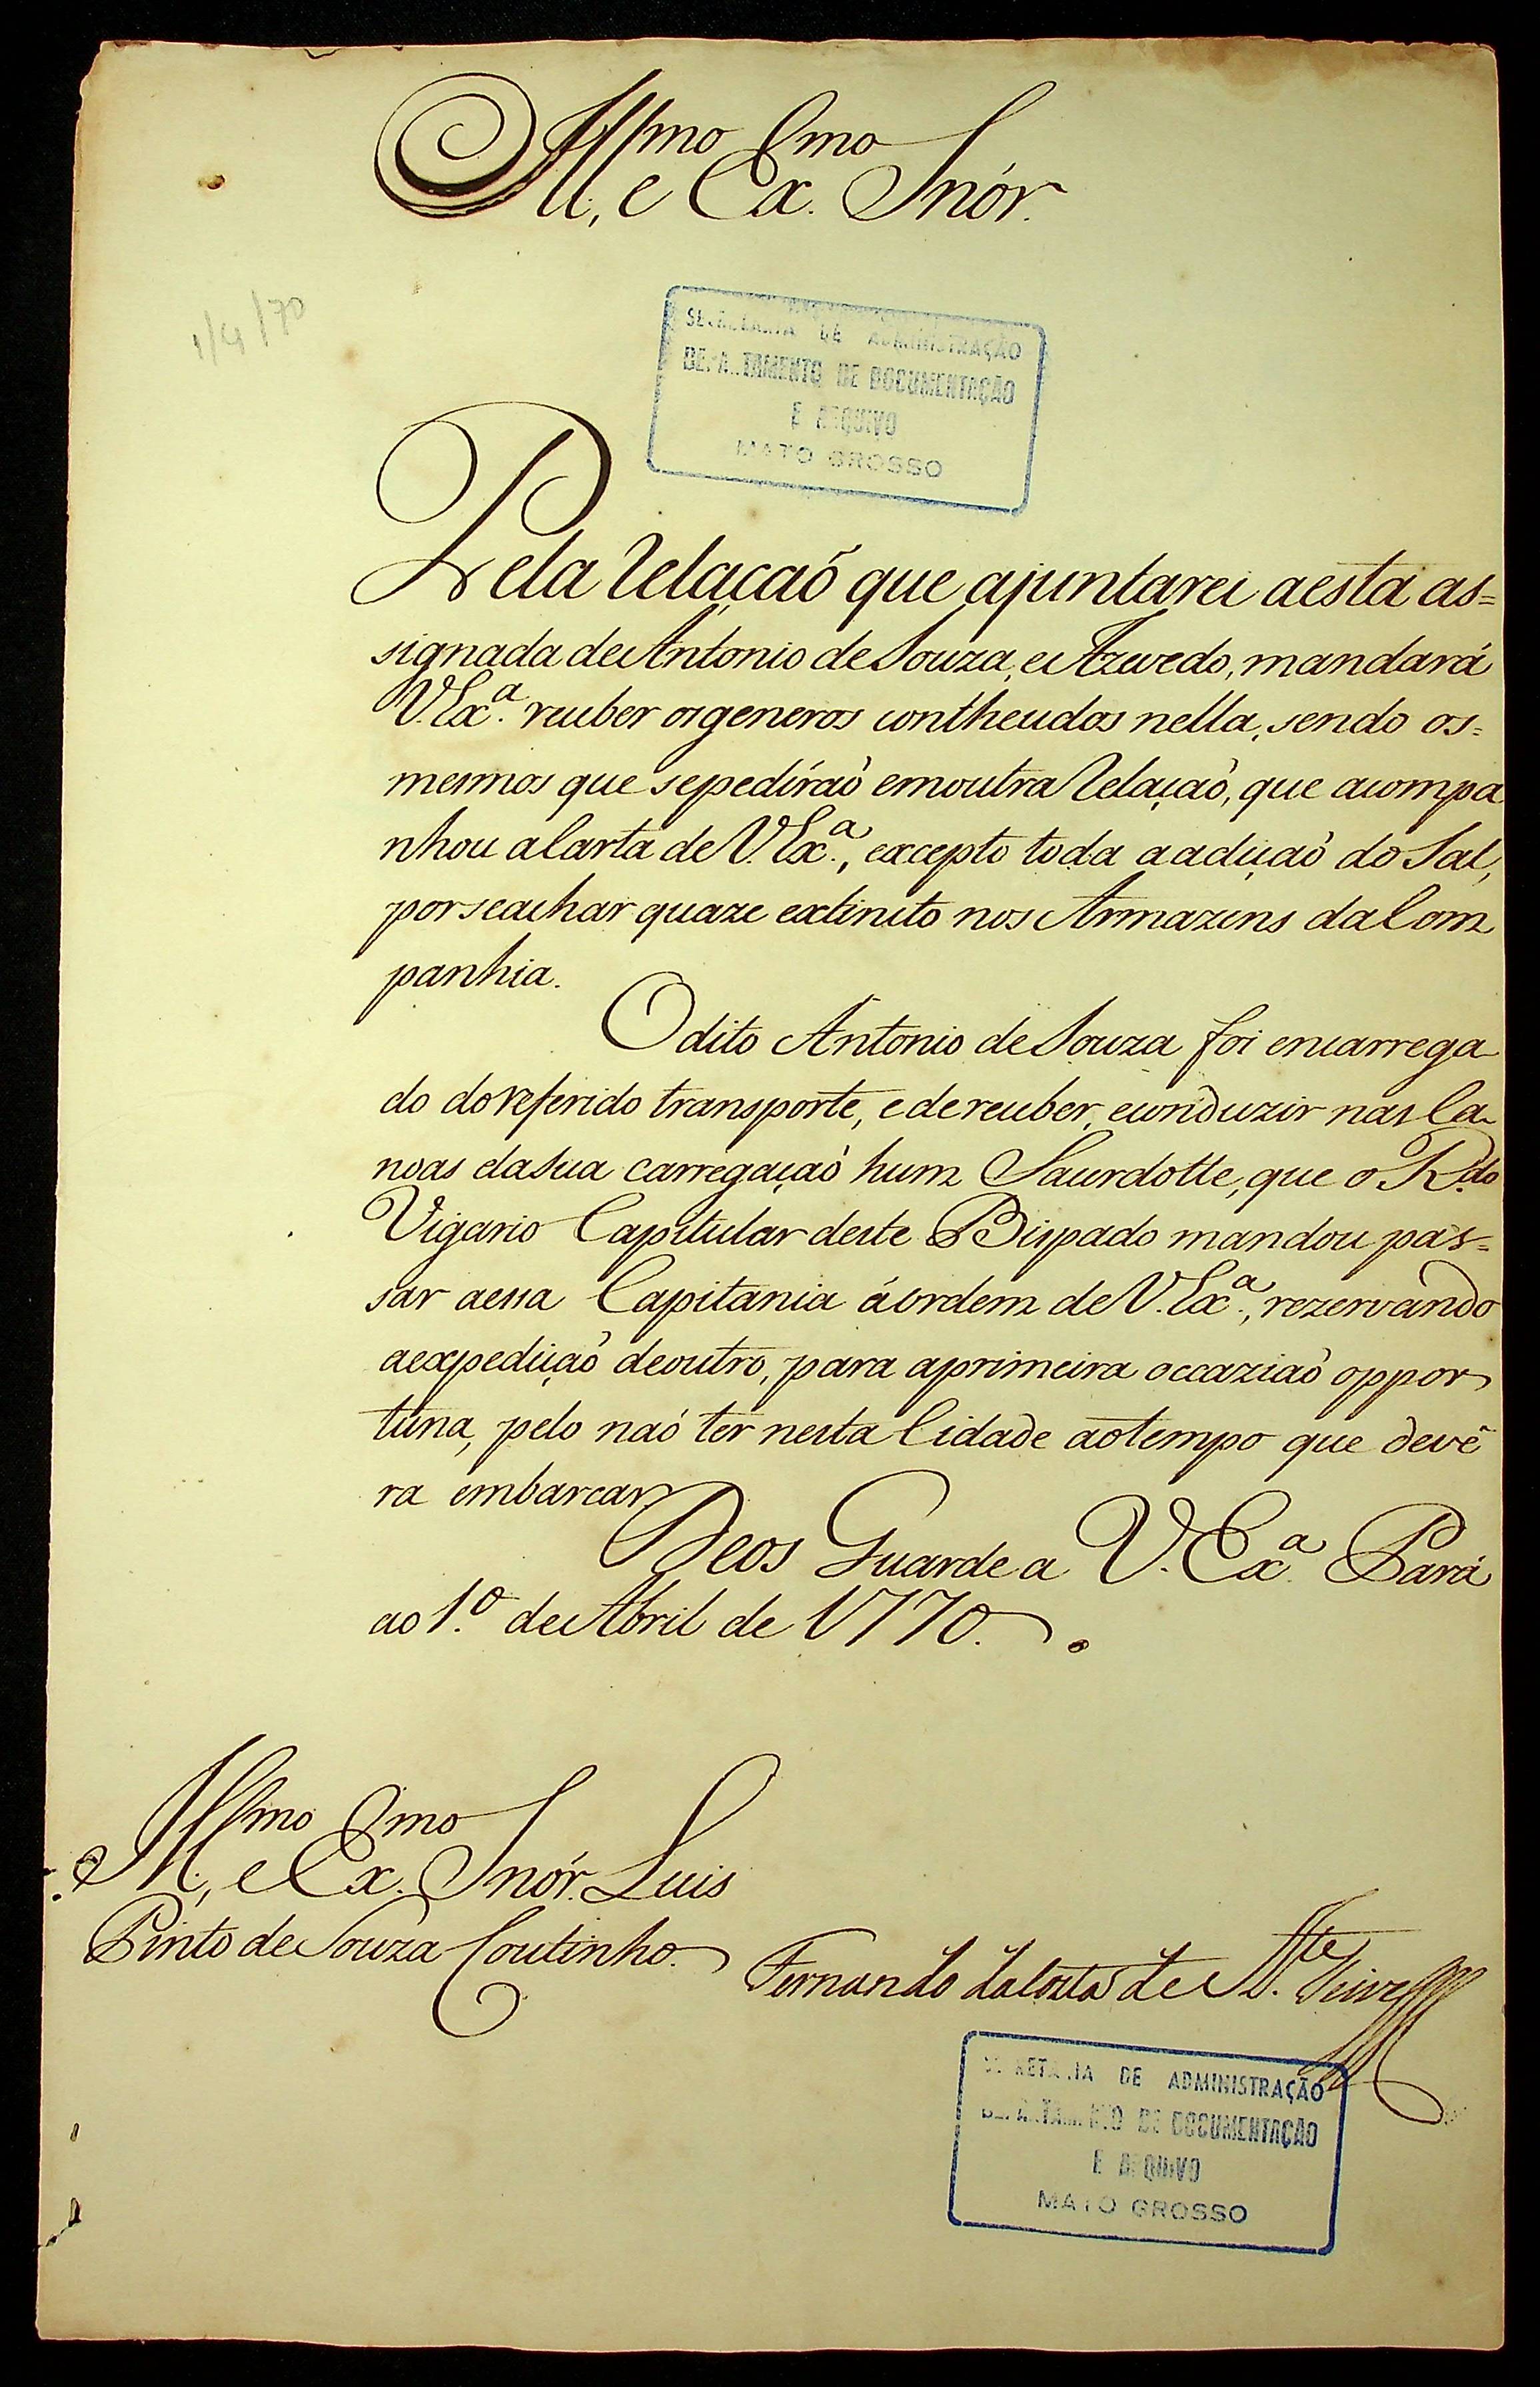 Ill.mo e Ex.mo Snór.
1/4/70
SECRETARIA DE ADMINISTRAÇÃO
DEPARTAMENTO DE DOCUMENTAÇÃO
E ARQUIVO
MATO GROSSO
Pela Relaçaõ que ajuntarei aesta as=
signada de Antonio de Souza, e Azevedo, mandará
V. Ex.ª receber os generos contheudos nella, sendo os=
mesmos que sepediraõ em outra Relaçaõ, que acompa
nhou a Carta de V. Ex.ª, excepto toda a adiçaõ do Sal,
por se achar quaze extincto nos Armazens da Com
panhia.
O dito Antonio de Souza foi encarrega
do do referido transporte, e de receber, e conduzir nas Ca
noas da sua carregaçaõ hum Sacerdotte, que o R.do
Vigario Capitular deste Bispado mandou pas=
sar a essa Capitania á ordem de V. Ex.ª, rezervando
a expediçaõ de outro, para a primeira occaziaõ oppor
tuna, pelo naõ ter nesta Cidade ao tempo que devê
ra embarcar.
Deos Guarde a V. Ex.ª Pará
ao 1.º de Abril de 1770.
Ill.mo e Ex.mo Snór. Luis
Pinto de Souza Coutinho.
Fernando da Costa de At.te Teive
SECRETARIA DE ADMINISTRAÇÃO
DEPARTAMENTO DE DOCUMENTAÇÃO
E ARQUIVO
MATO GROSSO